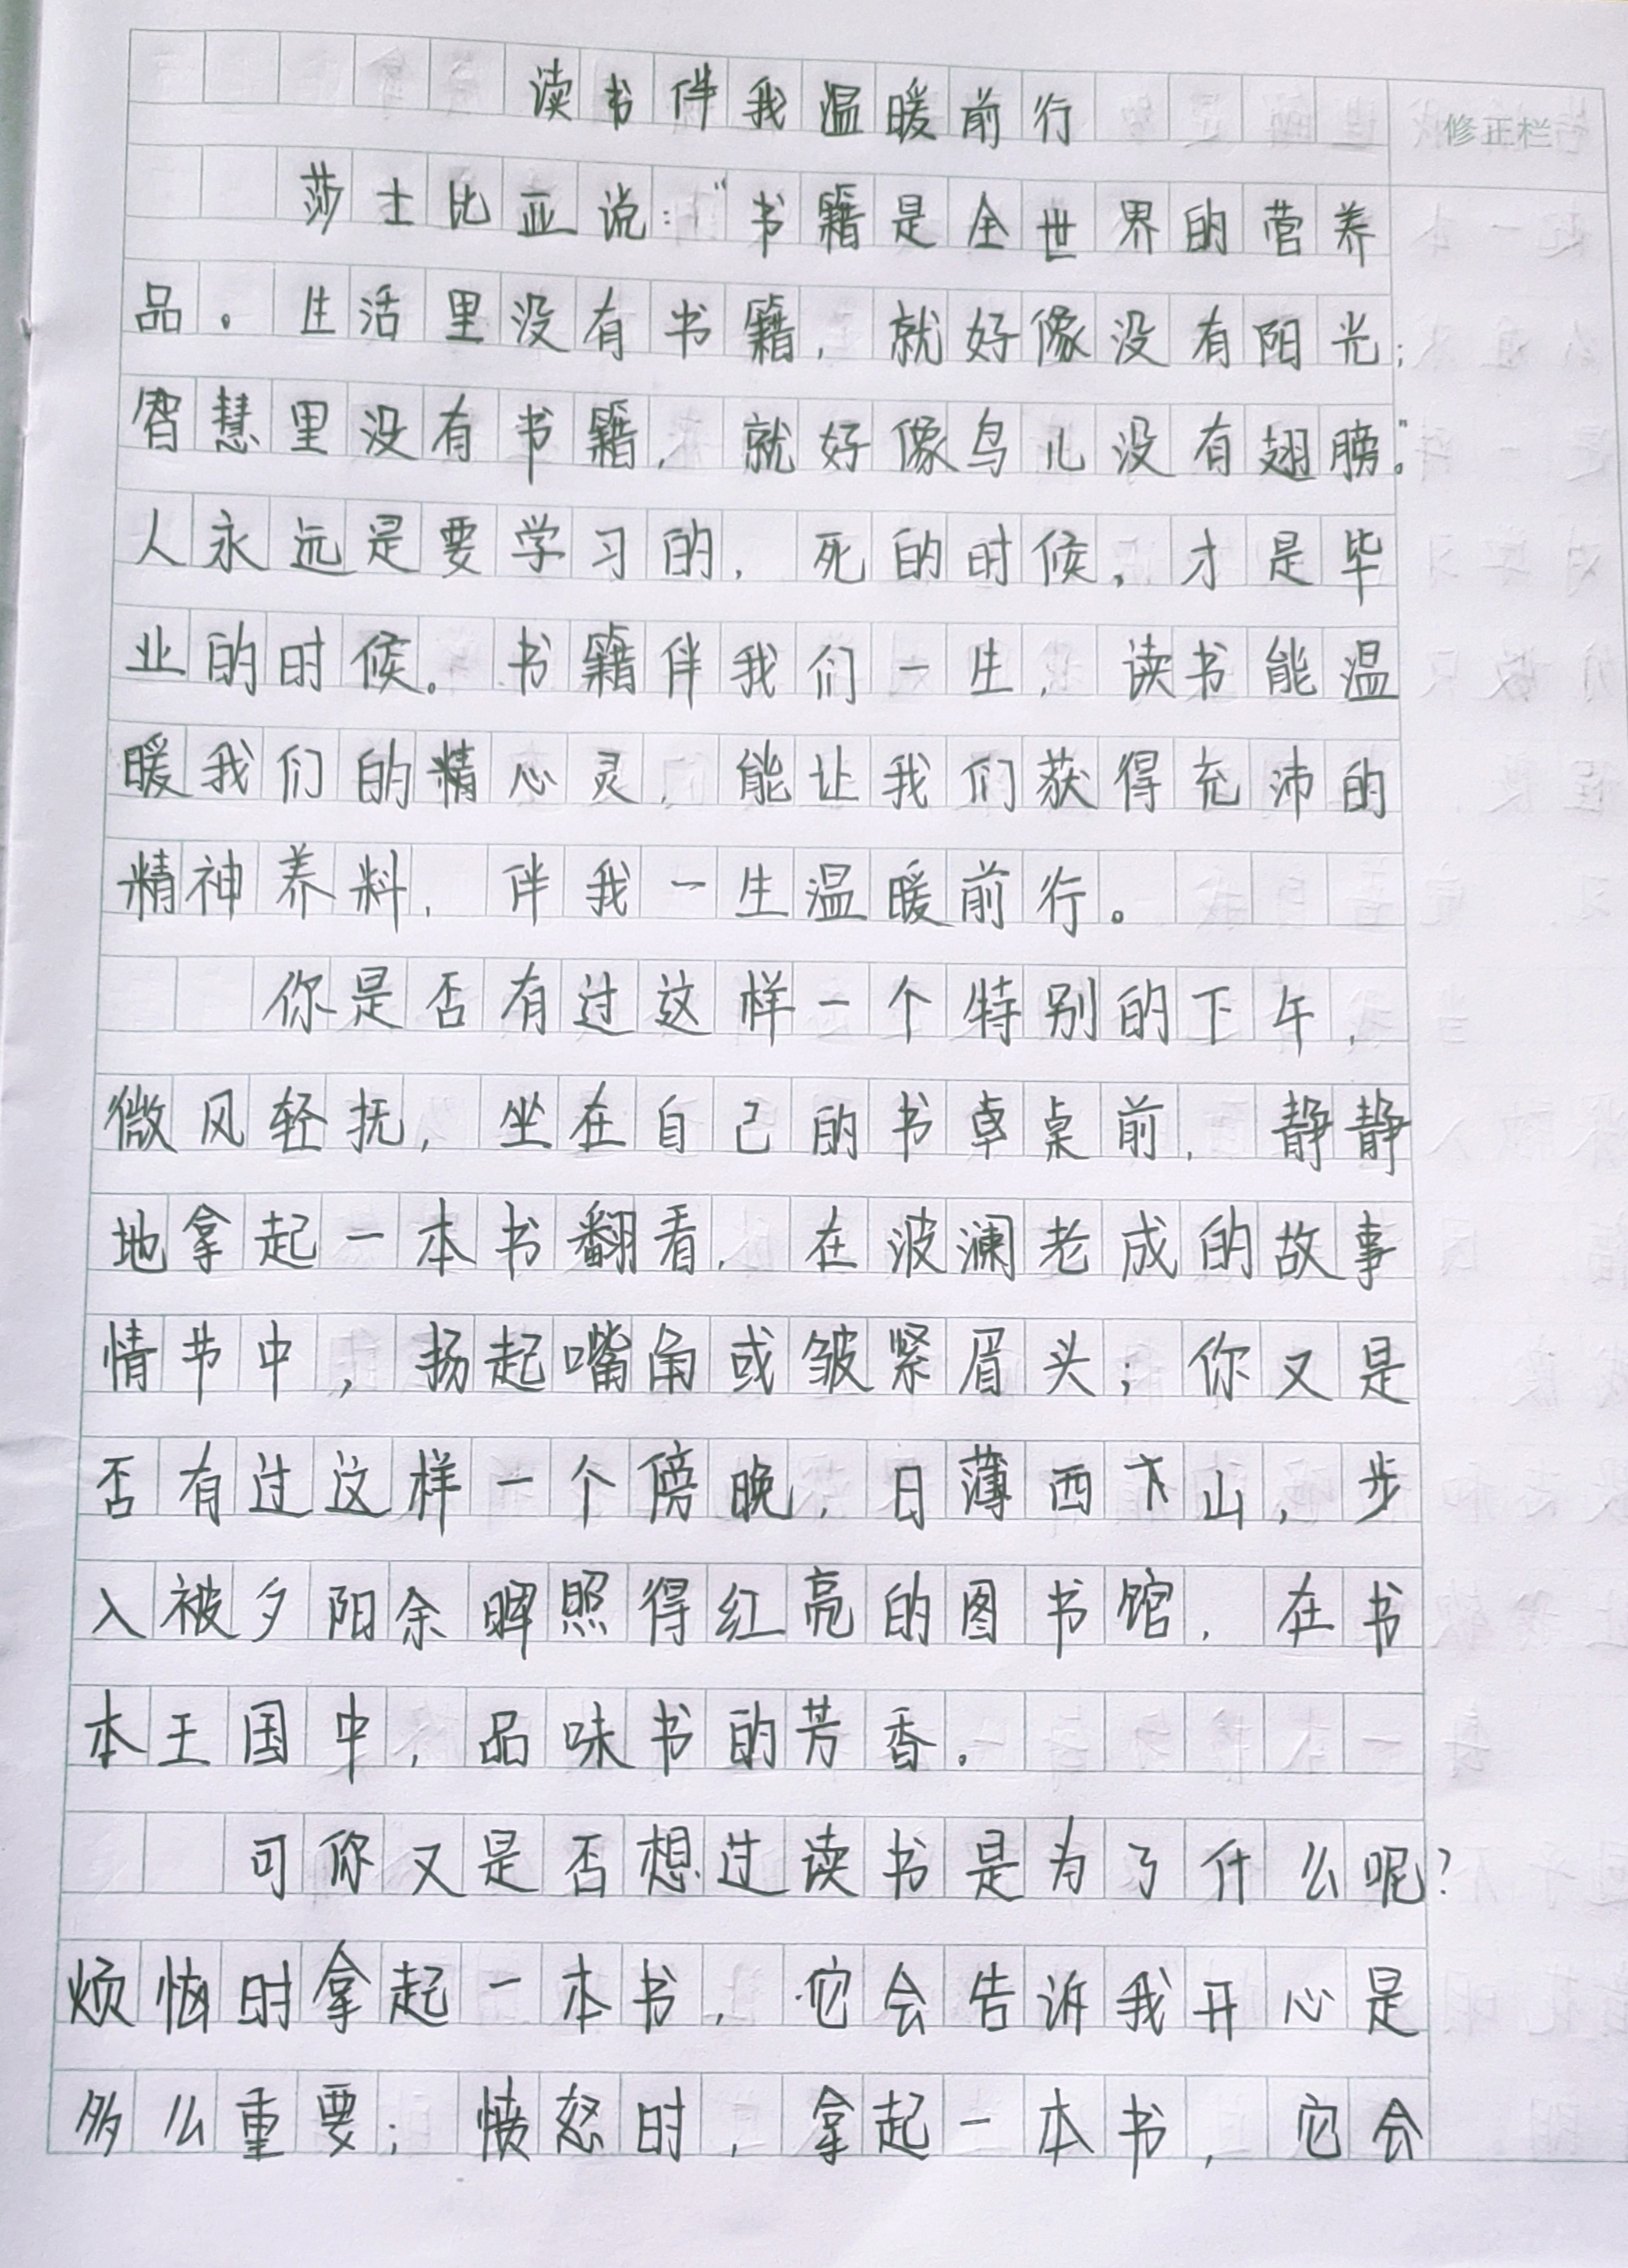 读书伴我温暖前行
修正栏
莎士比亚说：“书籍是全世界的营养
品。生活里没有书籍，就好像没有阳光；
智慧里没有书籍，就好像鸟儿没有翅膀。”
人永远是要学习的，死的时候，才是毕
业的时候。书籍伴我们一生，读书能温
暖我们的精心灵，能让我们获得充沛的
精神养料，伴我一生温暖前行。
你是否有过这样一个特别的下午，
微风轻抚，坐在自己的书卓桌前，静静
地拿起一本书翻看，在波澜老成的故事
情节中，扬起嘴角或皱紧眉头；你又是
否有过这样一个傍晚，日薄西下山，步
入被夕阳余晖照得红亮的图书馆，在书
本王国中，品味书的芳香。
可你又是否想过读书是为了什么呢？
烦恼时拿起一本书，它会告诉我开心是
多么重要；愤怒时，拿起一本书，它会